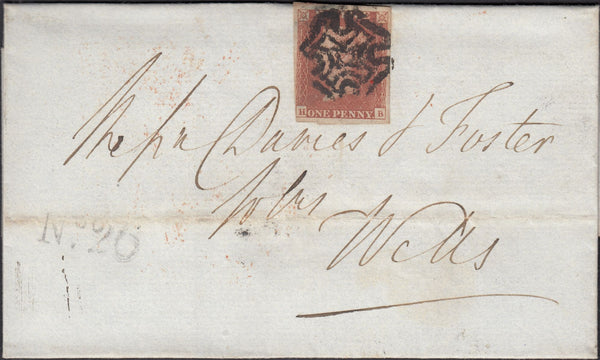 H ONE PENNY B
Messrs Davies & Foster
Solrs
Wells
No. 20